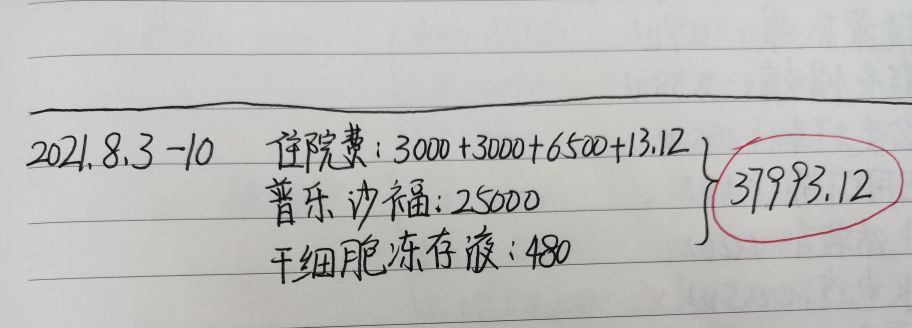 2021.8.3-10 住院费：3000+3000+6500+13.12
普乐沙福：25000
干细胞冻存液：480
37993.12